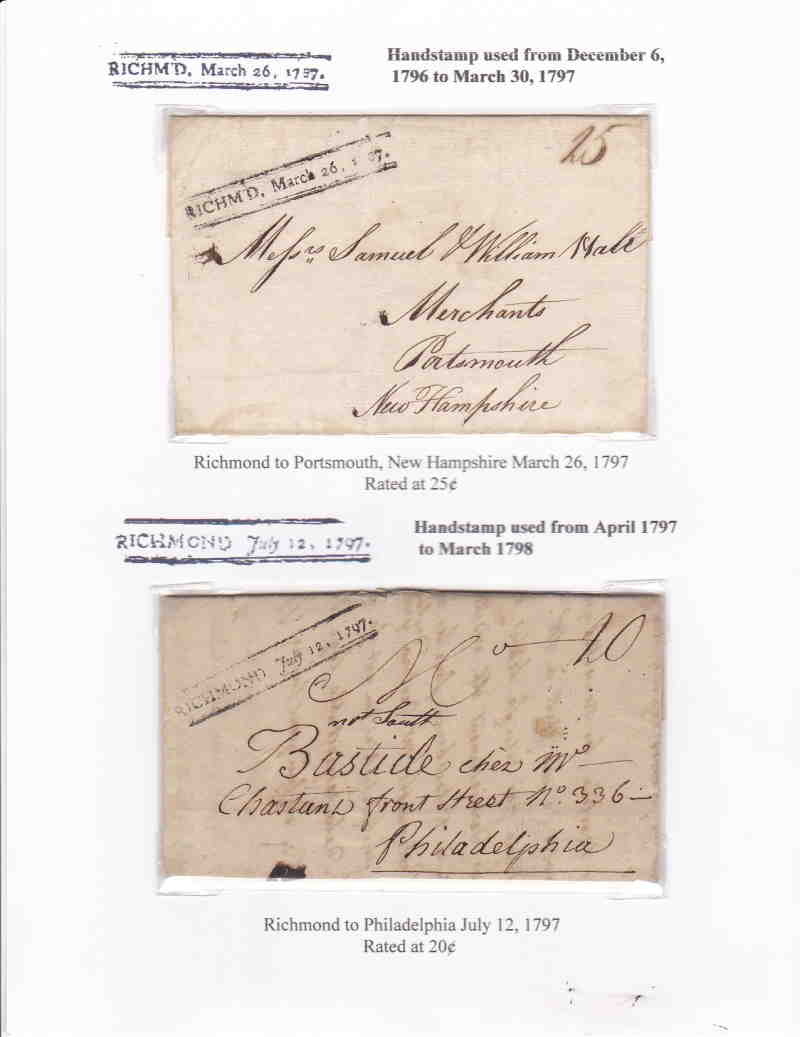 RICHM'D, March 26, 1797.
Handstamp used from December 6,
1796 to March 30, 1797
RICHM'D, March 26, 1797.
25
Messrs Samuel & William Hale
Merchants
Portsmouth
New Hampshire
Richmond to Portsmouth, New Hampshire March 26, 1797
Rated at 25¢
RICHMOND July 12, 1797.
Handstamp used from April 1797
to March 1798
RICHMOND July 12, 1797.
20
not South
Bastide chez Mo
front Street No. 336
Philadelphia
Richmond to Philadelphia July 12, 1797
Rated at 20¢